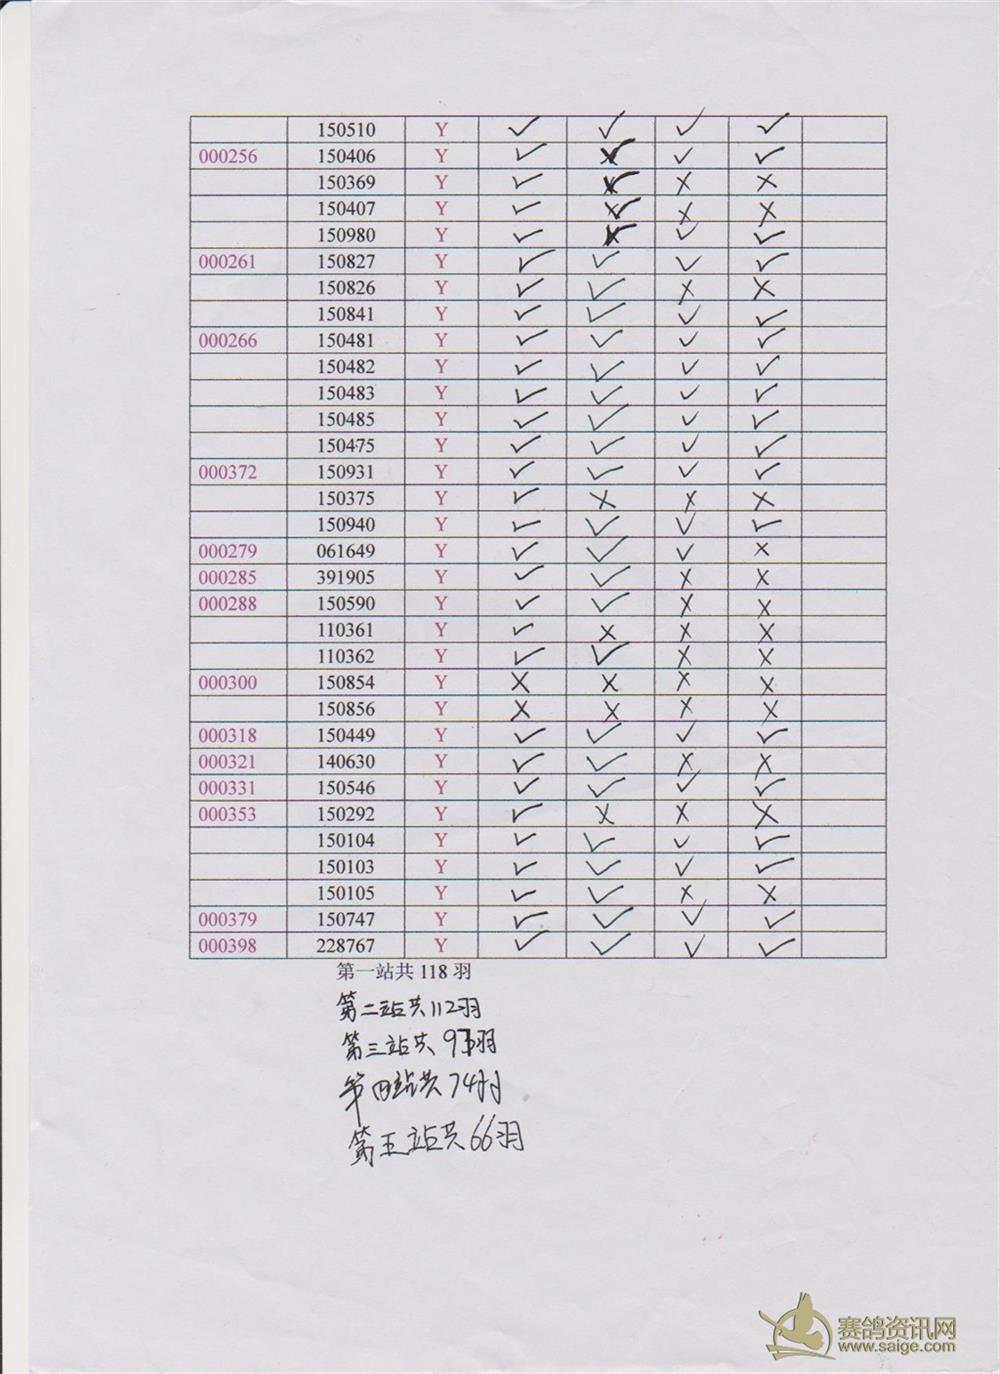 150510 Y ✓ ✓ ✓ ✓
000256 150406 Y ✓ ✓ ✓ ✓
150369 Y ✓ ✓ ✗ ✗
150407 Y ✓ ✓ ✗ ✗
150980 Y ✓ ✓ ✓ ✓
000261 150827 Y ✓ ✓ ✓ ✓
150826 Y ✓ ✓ ✗ ✗
150841 Y ✓ ✓ ✓ ✓
000266 150481 Y ✓ ✓ ✓ ✓
150482 Y ✓ ✓ ✓ ✓
150483 Y ✓ ✓ ✓ ✓
150485 Y ✓ ✓ ✓ ✓
150475 Y ✓ ✓ ✓ ✓
000372 150931 Y ✓ ✓ ✓ ✓
150375 Y ✓ ✗ ✗ ✗
150940 Y ✓ ✓ ✓ ✓
000279 061649 Y ✓ ✓ ✓ ✗
000285 391905 Y ✓ ✓ ✗ ✗
000288 150590 Y ✓ ✓ ✗ ✗
110361 Y ✓ ✗ ✗ ✗
110362 Y ✓ ✓ ✗ ✗
000300 150854 Y ✗ ✗ ✗ ✗
150856 Y ✗ ✗ ✗ ✗
000318 150449 Y ✓ ✓ ✓ ✓
000321 140630 Y ✓ ✓ ✗ ✗
000331 150546 Y ✓ ✓ ✓ ✓
000353 150292 Y ✓ ✗ ✗ ✗
150104 Y ✓ ✓ ✓ ✓
150103 Y ✓ ✓ ✓ ✓
150105 Y ✓ ✓ ✗ ✗
000379 150747 Y ✓ ✓ ✓ ✓
000398 228767 Y ✓ ✓ ✓ ✓
第一站共 118 羽
第二站共112羽
第三站共 羽
第四站共74羽
第五站共66羽
赛鸽资讯网
www.saige.com